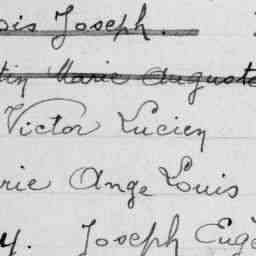 ois Joseph.
tin Marie Auguste
Victor Lucien
rie Ange Louis
y. Joseph Eugè